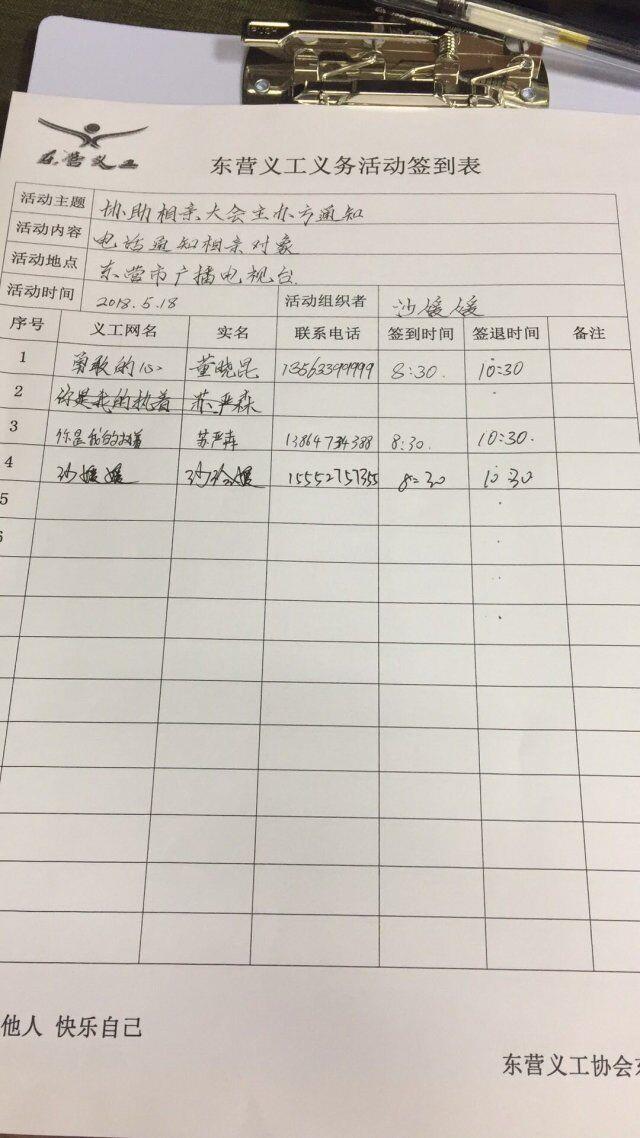 东营义工
东营义工义务活动签到表
活动主题 协助相亲大会主办方通知
活动内容 电话通知相亲对象
活动地点 东营市广播电视台
活动时间 2018.5.18 活动组织者 沙媛媛
序号 义工网名 实名 联系电话 签到时间 签退时间 备注
1 勇敢的心 董晓昆 13563399999 8:30. 10:30
2 你是我的执着 苏严森
3 你是我的执着 苏严森 13864734388 8:30. 10:30.
4 沙媛媛 沙媛媛 15552757355 8:30 10:30
5
6
他人 快乐自己
东营义工协会东